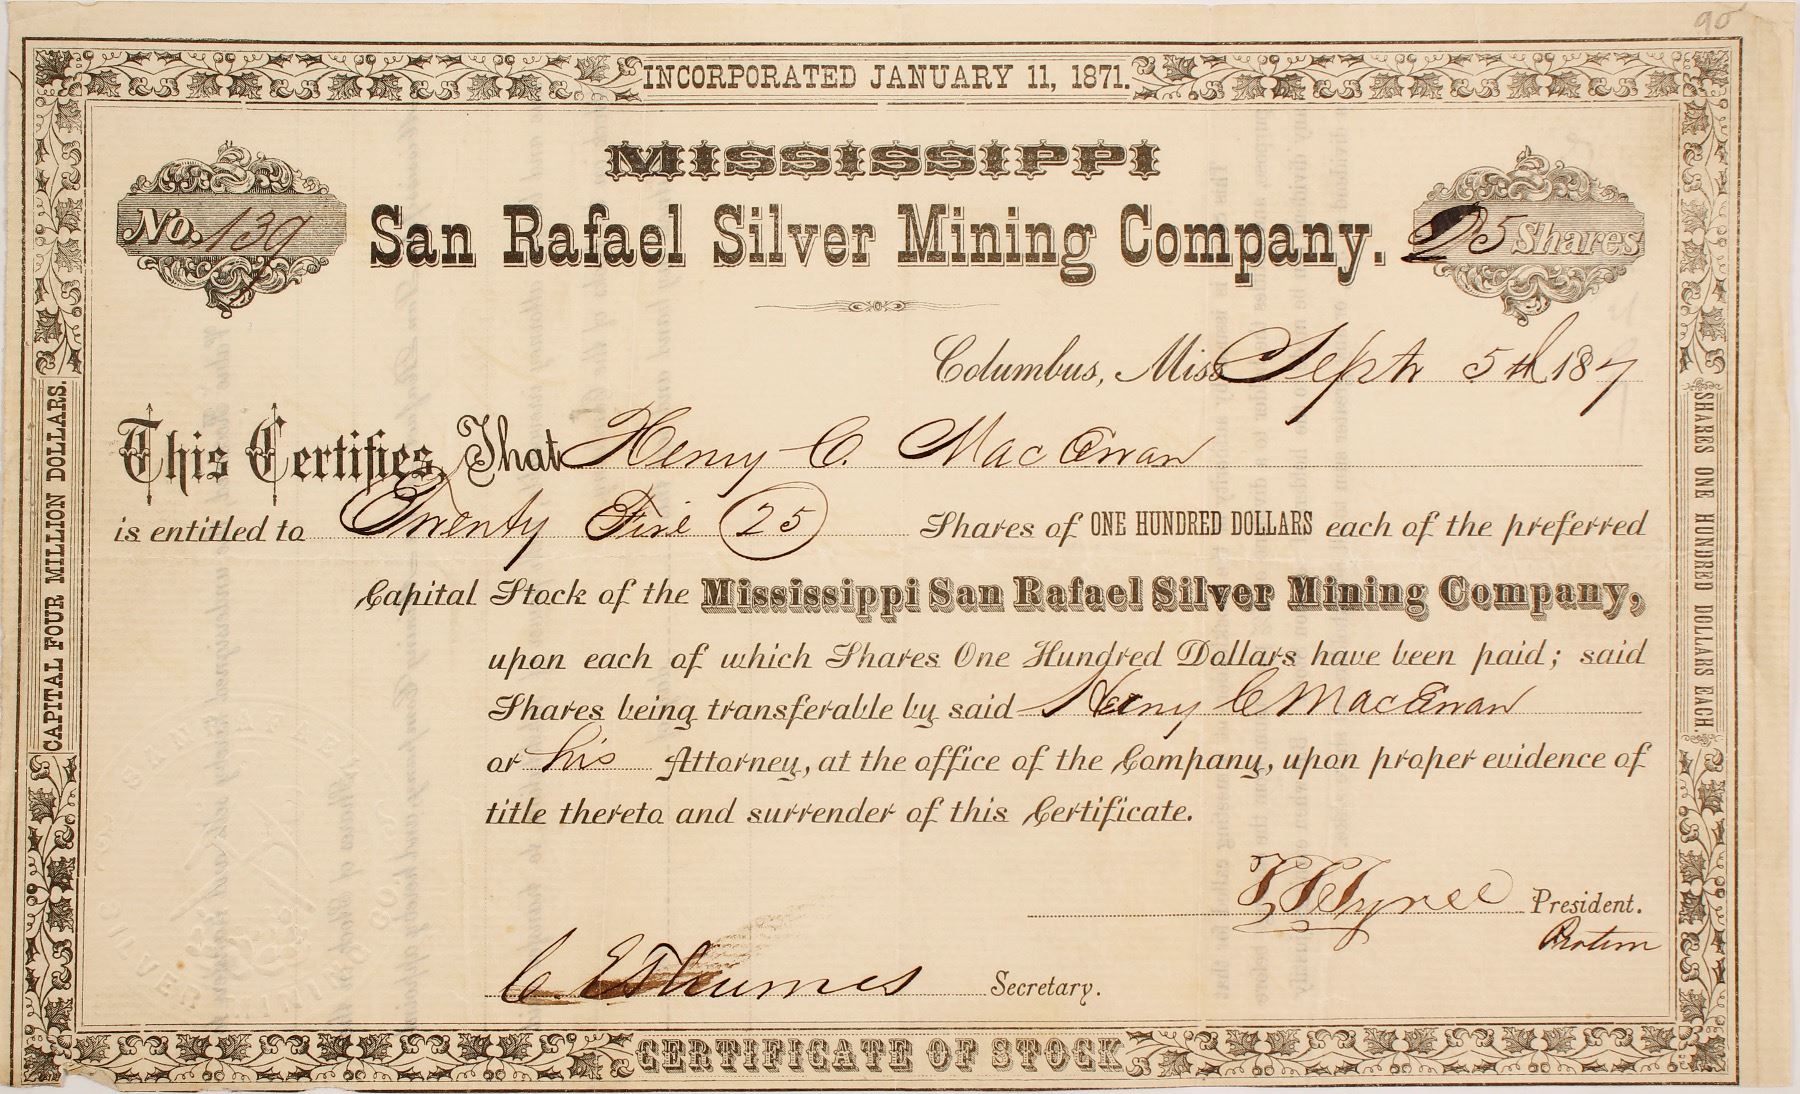 90
INCORPORATED JANUARY 11, 1871.
MISSISSIPPI
No. 139
San Rafael Silver Mining Company.
25 Shares
Columbus, Miss Sept 5th 187
This Certifies, That Henry C. MacEwan
is entitled to Twenty Five (25) Shares of ONE HUNDRED DOLLARS each of the preferred
Capital Stock of the Mississippi San Rafael Silver Mining Company,
upon each of which Shares One Hundred Dollars have been paid; said
Shares being transferable by said Henry C MacEwan
or his Attorney, at the office of the Company, upon proper evidence of
title thereto and surrender of this Certificate.
Tyree President.
Protem
C. E. Thumes Secretary.
CERTIFICATE OF STOCK
CAPITAL FOUR MILLION DOLLARS.
SHARES ONE HUNDRED DOLLARS EACH.